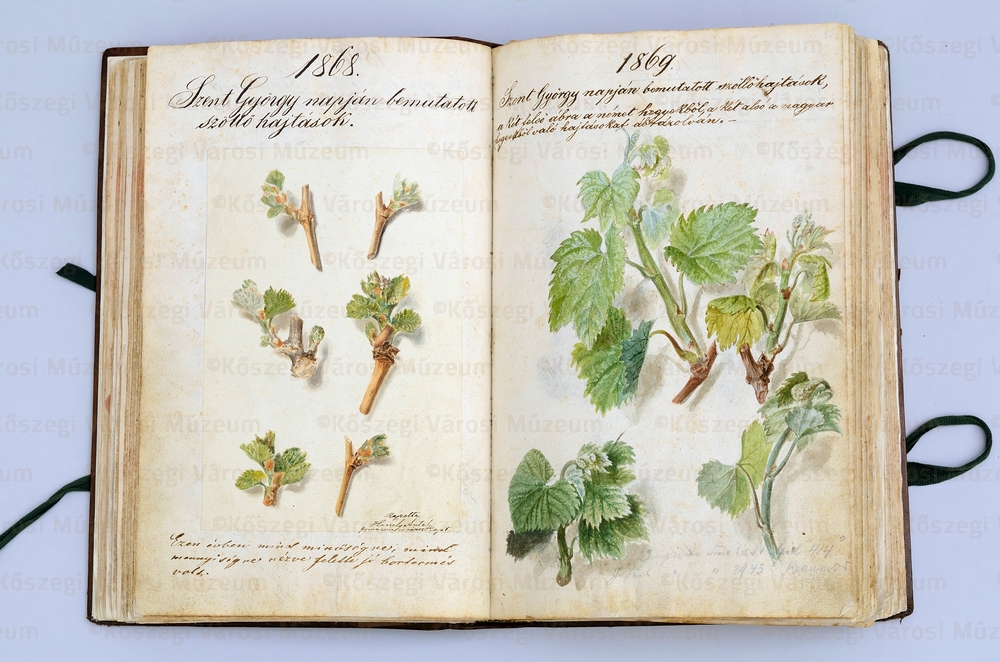 1868.
Szent György napján bemutatott
szőllő hajtások.
Rajzolta
Ezen évben mind minőségre, mind
mennyiségre nézve felette jó bortermés
volt.
1869.
Szent György napján bemutatott szőllőhajtások,
a két felső ábra a német hegyekből, a két alsó a magyar
hegyekből való hajtásokat ábrázolván. –
1943
©Kőszegi Városi Múzeum